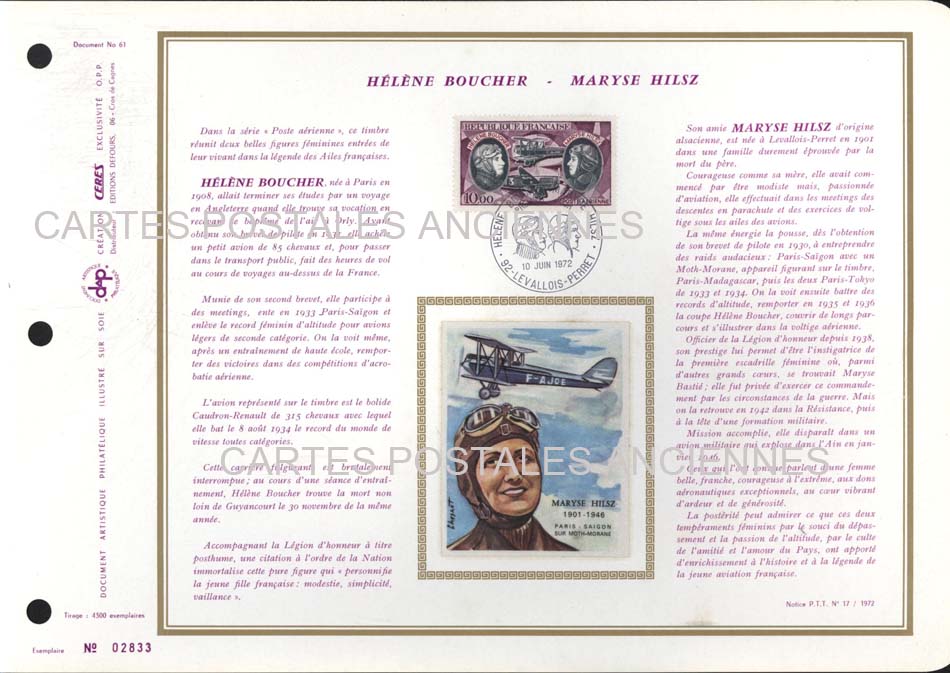 Document No 61
HÉLÈNE BOUCHER - MARYSE HILSZ
Dans la série « Poste aérienne », ce timbre
réunit deux belles figures féminines entrées de
leur vivant dans la légende des Ailes françaises.
HÉLÈNE BOUCHER, née à Paris en
1908, allait terminer ses études par un voyage
en Angleterre quand elle trouve sa vocation en
recevant le baptême de l'air à Orly. Ayant
obtenu son brevet de pilote en 1931, elle achète
un petit avion de 85 chevaux et, pour passer
dans le transport public, fait des heures de vol
au cours de voyages au-dessus de la France.
Munie de son second brevet, elle participe à
des meetings, ente en 1933 Paris-Saigon et
enlève le record féminin d'altitude pour avions
légers de seconde catégorie. On la voit même,
après un entraînement de haute école, rempor-
ter des victoires dans des compétitions d'acro-
batie aérienne.
L'avion représenté sur le timbre est le bolide
Caudron-Renault de 315 chevaux avec lequel
elle bat le 8 août 1934 le record du monde de
vitesse toutes catégories.
Cette carrière fulgurante est brutalement
interrompue ; au cours d'une séance d'entraî-
nement, Hélène Boucher trouve la mort non
loin de Guyancourt le 30 novembre de la même
année.
Accompagnant la Légion d'honneur à titre
posthume, une citation à l'ordre de la Nation
immortalise cette pure figure qui « personnifie
la jeune fille française : modestie, simplicité,
vaillance ».
REPUBLIQUE FRANÇAISE
HÉLÈNE BOUCHER
MARYSE HILSZ
10,00
POSTE AÉRIENNE
HELENE BOUCHER
MARYSE HILSZ
10 JUIN 1972
92-LEVALLOIS-PERRET
F-AJOE
MARYSE HILSZ
1901-1946
PARIS - SAIGON
SUR MOTH-MORANE
Son amie MARYSE HILSZ d'origine
alsacienne, est née à Levallois-Perret en 1901
dans une famille durement éprouvée par la
mort du père.
Courageuse comme sa mère, elle avait com-
mencé par être modiste mais, passionnée
d'aviation, elle effectuait dans les meetings des
descentes en parachute et des exercices de vol-
tige sous les ailes des avions.
La même énergie la pousse, dès l'obtention
de son brevet de pilote en 1930, à entreprendre
des raids audacieux : Paris-Saïgon avec un
Moth-Morane, appareil figurant sur le timbre,
Paris-Madagascar, puis les deux Paris-Tokyo
de 1933 et 1934. On la voit ensuite battre des
records d'altitude, remporter en 1935 et 1936
la coupe Hélène Boucher, couvrir de longs par-
cours et s'illustrer dans la voltige aérienne.
Officier de la Légion d'honneur depuis 1938,
son prestige lui permet d'être l'instigatrice de
la première escadrille féminine où, parmi
d'autres grands cœurs, se trouvait Maryse
Bastié ; elle fut privée d'exercer ce commande-
ment par les circonstances de la guerre. Mais
on la retrouve en 1942 dans la Résistance, puis
à la tête d'une formation militaire.
Mission accomplie, elle disparaît dans un
avion militaire qui explose dans l'Ain en jan-
vier 1946.
Ceux qui l'ont connue parlent d'une femme
belle, franche, courageuse à l'extrême, aux dons
aéronautiques exceptionnels, au cœur vibrant
d'ardeur et de générosité.
La postérité peut admirer ce que ces deux
tempéraments féminins par le souci du dépas-
sement et la passion de l'altitude, par le culte
de l'amitié et l'amour du Pays, ont apporté
d'enrichissement à l'histoire et à la légende de
la jeune aviation française.
Notice P.T.T. N° 17 / 1972
DOCUMENT ARTISTIQUE PHILATÉLIQUE ILLUSTRÉ SUR SOIE
CRÉATION CERES EXCLUSIVITÉ O.P.P.
Distributeur : ÉDITIONS DEFOURS, 06 - Cros de Cagnes
dap
Tirage : 4300 exemplaires
Exemplaire Nº 02833
CARTES POSTALES ANCIENNES
CARTES POSTALES ANCIENNES